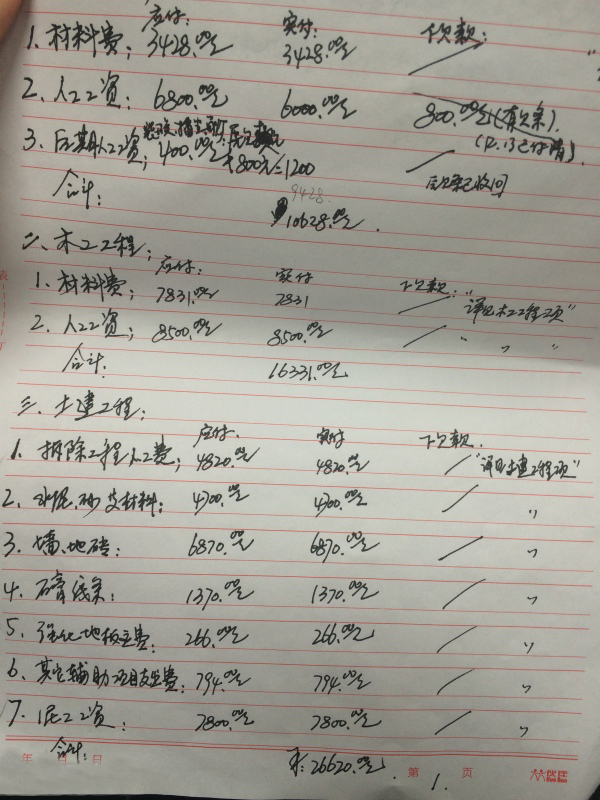 应付: 实付: 下欠款:
1. 材料费: 3428.00元 3428.00元
2. 人工工资: 6800.00元 6000.00元 800.00元(有欠条).
3. 后期人工资; 400.00元 +800元=1200
欠条已收回
合计: 9428
10628.00元.
二、木工工程;
应付: 实付 下欠款:
1. 材料费; 7831.00元 7831 "详见木工工程项"
2. 人工资; 8500.00元 8500.00元 " " "
合计: 16331.00元
三、土建工程:
应付. 实付 下欠款.
1. 拆除工程人工费; 4820.00元 4820.00元 "详见土建工程项"
2. 水泥、砂及材料; 4700.00元 4700.00元 "
3. 墙、地砖: 6870.00元 6870.00元 "
4. 石膏线条: 1370.00元 1370.00元 "
5. 强化地板 费: 266.00元 266.00元 "
6. 其它辅助项目支出费: 794.00元 794.00元 "
7. 泥工工资: 7800.00元 7800.00元 "
合计: 26620.00元.
年 月 日 第 1. 页